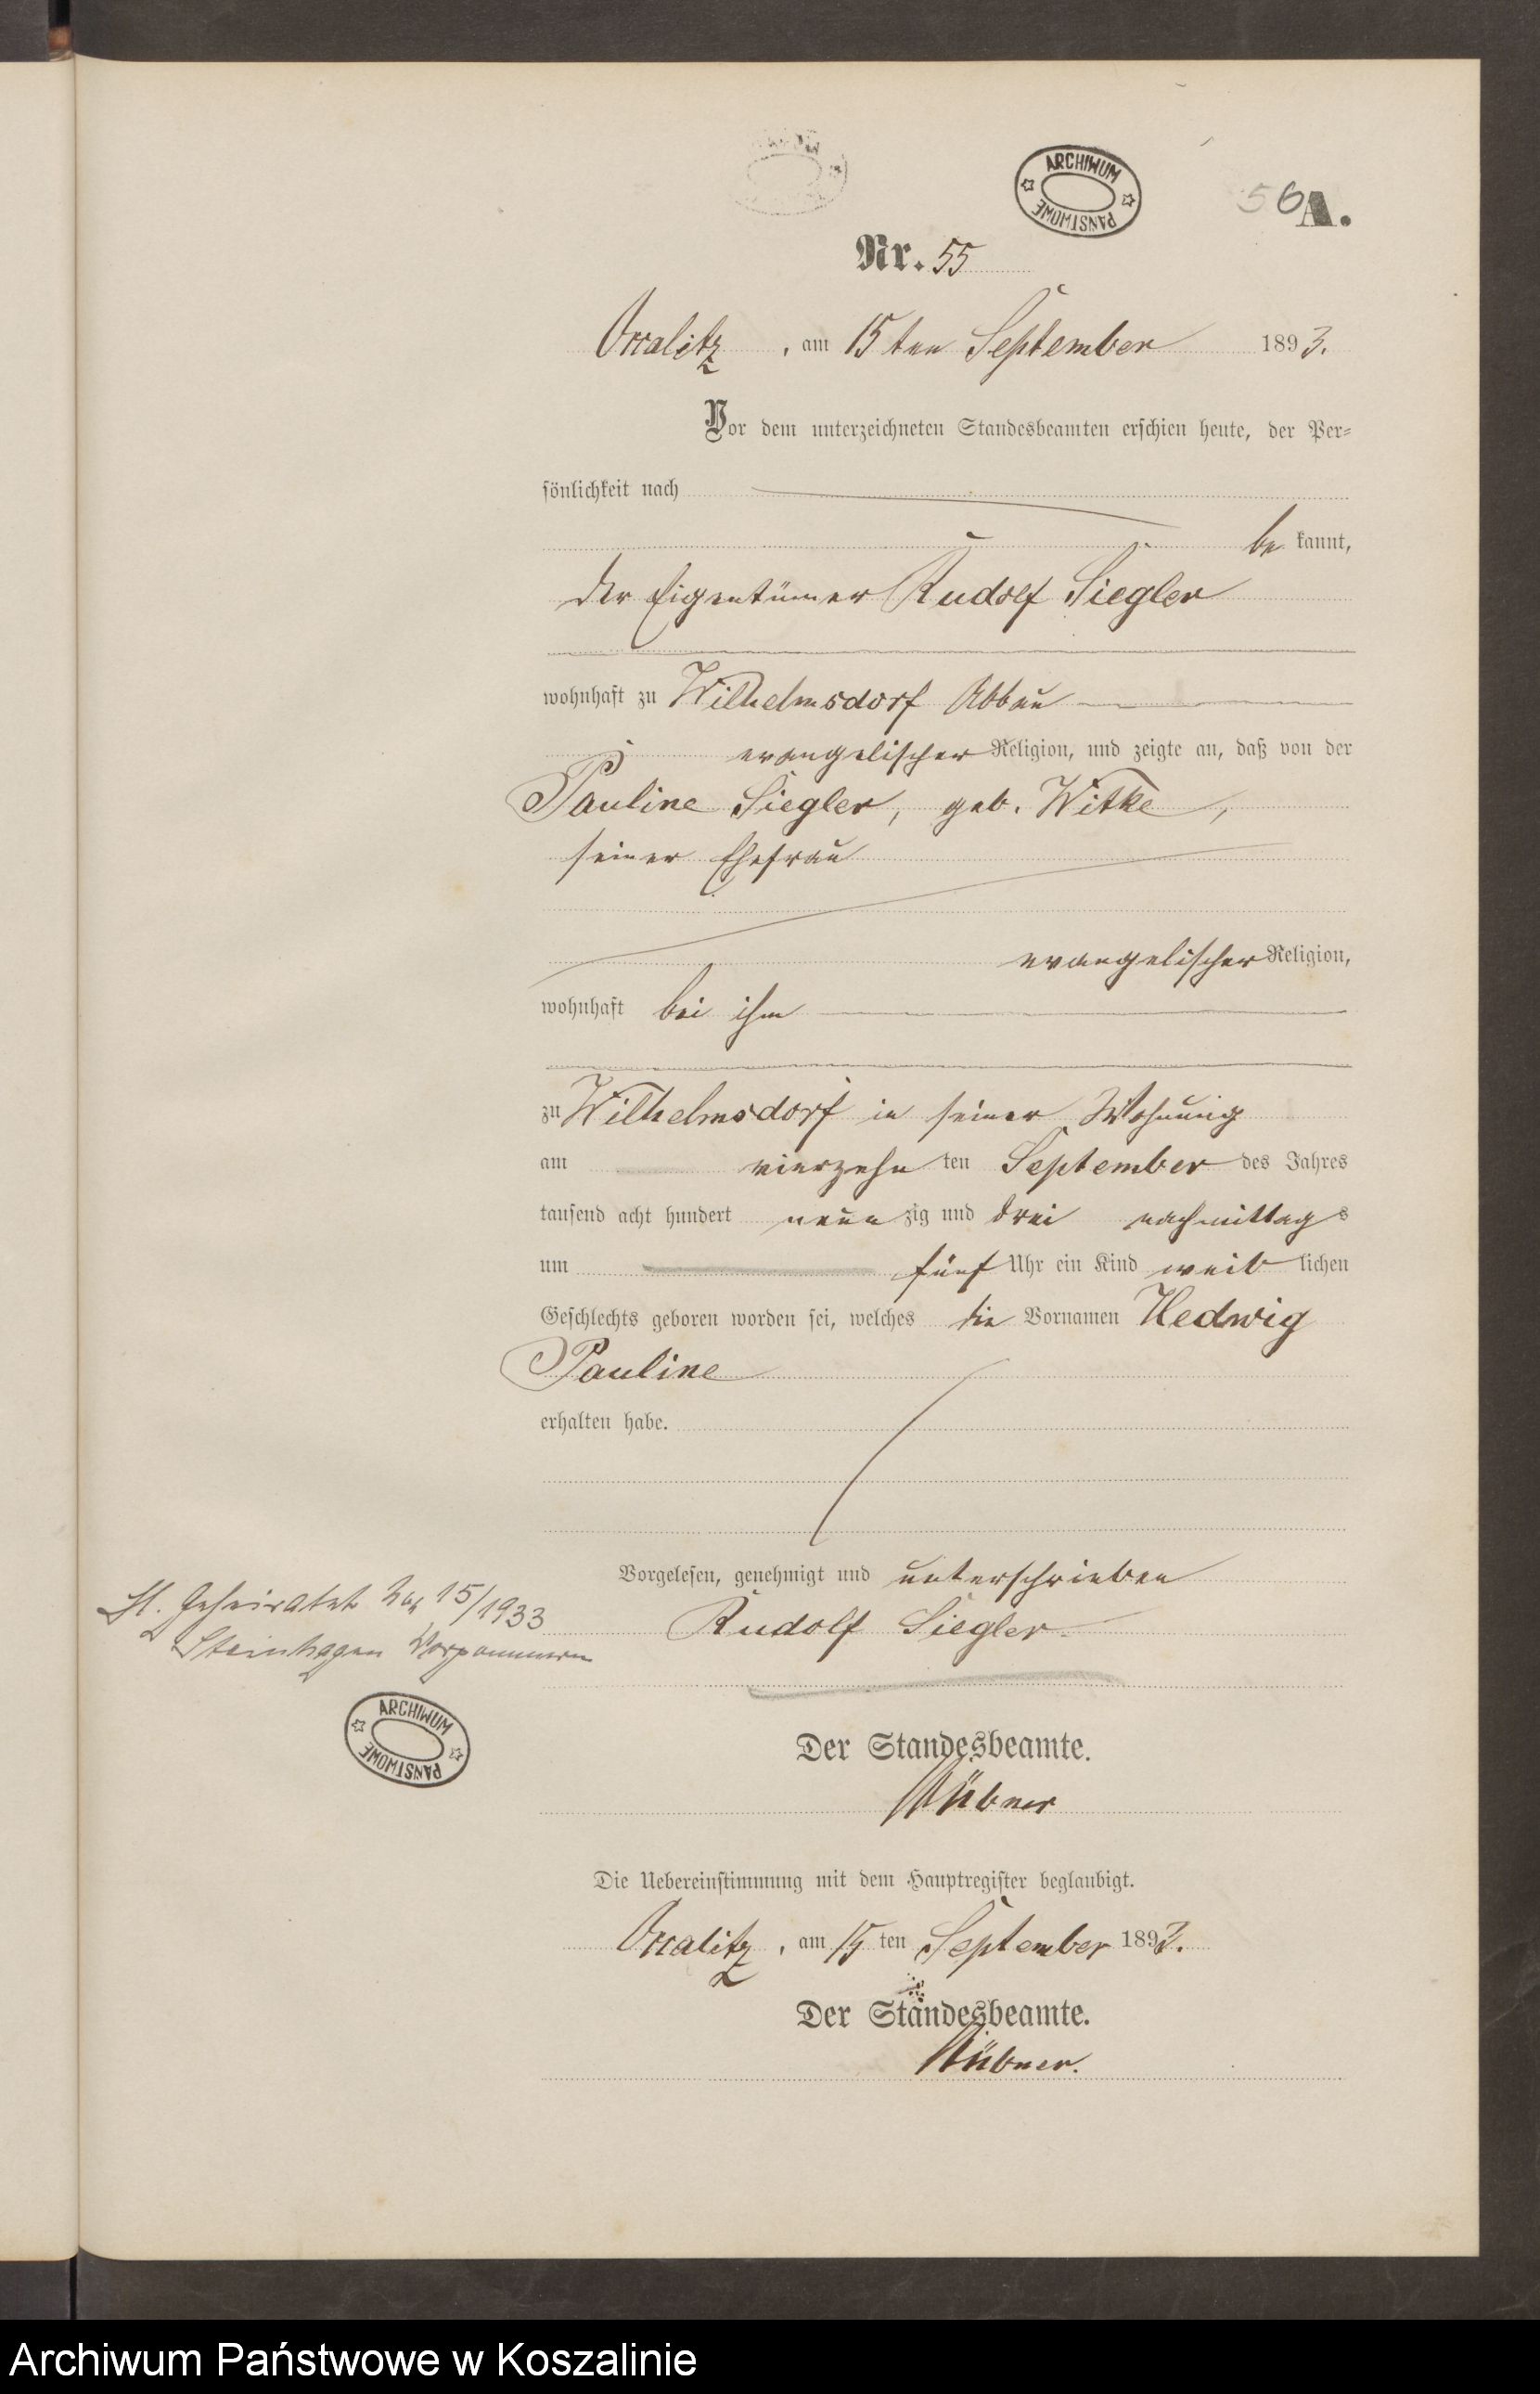 ARCHIWUM PAŃSTWOWE
56 A.
Nr. 55
am 15ten September 1893.
Vor dem unterzeichneten Standesbeamten erschien heute, der Per=
sönlichkeit nach
be kannt,
der Eigentümer Rudolf Siegler
wohnhaft zu Wilhelmsdorf Abbau
evangelischer Religion, und zeigte an, daß von der
Pauline Siegler, geb. Witke,
seiner Ehefrau
evangelischer Religion,
wohnhaft bei ihm
zu Wilhelmsdorf in seiner Wohnung
am vierzehn ten September des Jahres
tausend acht hundert neun zig und drei nachmittag s
um fünf Uhr ein Kind weib lichen
Geschlechts geboren worden sei, welches die Vornamen Hedwig
Pauline
erhalten habe.
Vorgelesen, genehmigt und unterschrieben
Rudolf Siegler.
Geheiratet 15/1933
Steinhagen Vorpommern
ARCHIWUM PAŃSTWOWE
Der Standesbeamte.
Die Uebereinstimmung mit dem Hauptregister beglaubigt.
am 15 ten September 1893.
Der Standesbeamte.
Archiwum Państwowe w Koszalinie